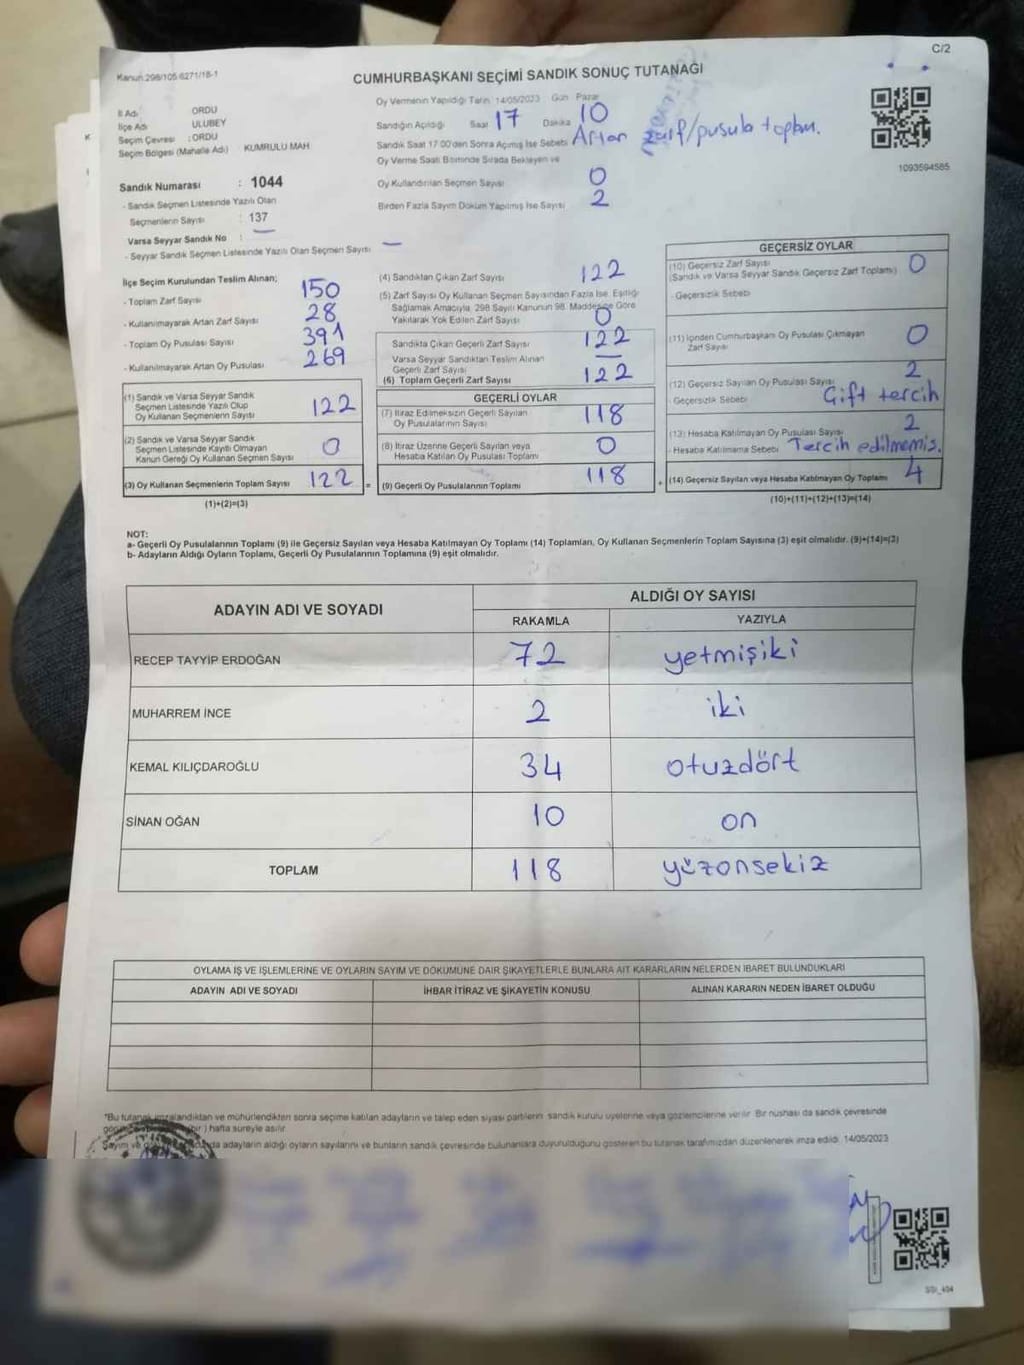 C/2
Kanun 298/105 6271/18-1
CUMHURBAŞKANI SEÇİMİ SANDIK SONUÇ TUTANAĞI
İl Adı ORDU
İlçe Adı ULUBEY
Seçim Çevresi : ORDU
Seçim Bölgesi (Mahalle Adı) KUMRULU MAH
Sandık Numarası : 1044
- Sandık Seçmen Listesinde Yazılı Olan
Seçmenlerin Sayısı : 137
Varsa Seyyar Sandık No : —
- Seyyar Sandık Seçmen Listesinde Yazılı Olan Seçmen Sayısı —
Oy Vermenin Yapıldığı Tarih 14/05/2023 Gün Pazar
Sandığın Açıldığı Saat 17 Dakika 10
Sandık Saat 17.00'den Sonra Açılmış İse Sebebi Artan zarf/pusula toplan.
Oy Verme Saati Bitiminde Sırada Bekleyen ve
Oy Kullandırılan Seçmen Sayısı 0
Birden Fazla Sayım Döküm Yapılmış İse Sayısı 2
1093594585
İlçe Seçim Kurulundan Teslim Alınan;
- Toplam Zarf Sayısı 150
- Kullanılmayarak Artan Zarf Sayısı 28
- Toplam Oy Pusulası Sayısı 391
- Kullanılmayarak Artan Oy Pusulası 269
(1) Sandık ve Varsa Seyyar Sandık
Seçmen Listesinde Yazılı Olup
Oy Kullanan Seçmenlerin Sayısı 122
(2) Sandık ve Varsa Seyyar Sandık
Seçmen Listesinde Kayıtlı Olmayan
Kanun Gereği Oy Kullanan Seçmen Sayısı 0
(3) Oy Kullanan Seçmenlerin Toplam Sayısı 122
(1)+(2)=(3)
(4) Sandıktan Çıkan Zarf Sayısı 122
(5) Zarf Sayısı Oy Kullanan Seçmen Sayısından Fazla İse, Eşitliği
Sağlamak Amacıyla, 298 Sayılı Kanunun 98. Maddesine Göre
Yakılarak Yok Edilen Zarf Sayısı 0
Sandıkta Çıkan Geçerli Zarf Sayısı 122
Varsa Seyyar Sandıktan Teslim Alınan
Geçerli Zarf Sayısı —
(6) Toplam Geçerli Zarf Sayısı 122
GEÇERLİ OYLAR
(7) İtiraz Edilmeksizin Geçerli Sayılan
Oy Pusulalarının Sayısı 118
(8) İtiraz Üzerine Geçerli Sayılan veya
Hesaba Katılan Oy Pusulası Toplamı 0
= (9) Geçerli Oy Pusulalarının Toplamı 118
GEÇERSİZ OYLAR
(10) Geçersiz Zarf Sayısı 0
(Sandık ve Varsa Seyyar Sandık Geçersiz Zarf Toplamı)
- Geçersizlik Sebebi
(11) İçinden Cumhurbaşkanı Oy Pusulası Çıkmayan
Zarf Sayısı 0
(12) Geçersiz Sayılan Oy Pusulası Sayısı 2
- Geçersizlik Sebebi Çift tercih
(13) Hesaba Katılmayan Oy Pusulası Sayısı 2
- Hesaba Katılmama Sebebi Tercih edilmemiş.
+ (14) Geçersiz Sayılan veya Hesaba Katılmayan Oy Toplamı 4
(10)+(11)+(12)+(13)=(14)
NOT:
a- Geçerli Oy Pusulalarının Toplamı (9) ile Geçersiz Sayılan veya Hesaba Katılmayan Oy Toplamı (14) Toplamları, Oy Kullanan Seçmenlerin Toplam Sayısına (3) eşit olmalıdır. (9)+(14)=(3)
b- Adayların Aldığı Oyların Toplamı, Geçerli Oy Pusulalarının Toplamına (9) eşit olmalıdır.
ADAYIN ADI VE SOYADI ALDIĞI OY SAYISI
RAKAMLA YAZIYLA
RECEP TAYYİP ERDOĞAN 72 yetmişiki
MUHARREM İNCE 2 iki
KEMAL KILIÇDAROĞLU 34 otuzdört
SİNAN OĞAN 10 on
TOPLAM 118 yüzonsekiz
OYLAMA İŞ VE İŞLEMLERİNE VE OYLARIN SAYIM VE DÖKÜMÜNE DAİR ŞİKAYETLERLE BUNLARA AİT KARARLARIN NELERDEN İBARET BULUNDUKLARI
ADAYIN ADI VE SOYADI İHBAR İTİRAZ VE ŞİKAYETİN KONUSU ALINAN KARARIN NEDEN İBARET OLDUĞU
*Bu tutanak imzalandıktan ve mühürlendikten sonra seçime katılan adayların ve talep eden siyasi partilerin sandık kurulu üyelerine veya gözlemcilerine verilir. Bir nüshası da sandık çevresinde
) hafta süreyle asılır.
Sayım ve adayların aldığı oyların sayılarını ve bunların sandık çevresinde bulunanlara duyurulduğunu gösteren bu tutanak tarafımızdan düzenlenerek imza edildi. 14/05/2023